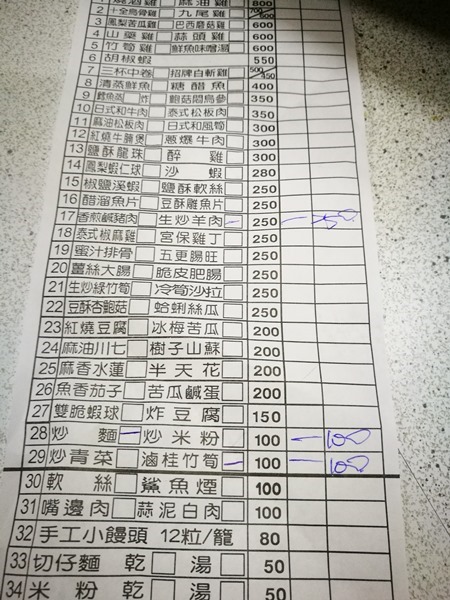 燒酒雞 麻油雞 800
2 十全烏骨雞 九尾雞 700/600
3 鳳梨苦瓜雞 巴西蘑菇雞 600
4 山藥雞 蒜頭雞 600
5 竹筍雞 鮮魚味噌湯 600
6 胡椒蝦 550
7 三杯中卷 招牌白斬雞 500/450
8 清蒸鮮魚 糖醋魚 400
9 鱈魚蒸 炸 鮑菇悶烏參 350
10 日式和牛肉 泰式松板肉 350
11 麻油松板肉 日式和風筍 300
12 紅燒牛腩煲 蔥爆牛肉 300
13 鹽酥龍珠 醉雞 300
14 鳳梨蝦仁球 沙蝦 280
15 椒鹽溪蝦 鹽酥軟絲 250
16 醋溜魚片 豆酥雕魚片 250
17 香煎鹹豬肉 生炒羊肉 250 250
18 泰式椒麻雞 宮保雞丁 250
19 蜜汁排骨 五更腸旺 250
20 薑絲大腸 脆皮肥腸 250
21 生炒綠竹筍 冷筍沙拉 250
22 豆酥杏鮑菇 蛤蜊絲瓜 250
23 紅燒豆腐 冰梅苦瓜 200
24 麻油川七 樹子山蘇 200
25 麻香水蓮 半天花 200
26 魚香茄子 苦瓜鹹蛋 200
27 雙脆蝦球 炸豆腐 150
28 炒麵 炒米粉 100 100
29 炒青菜 滷桂竹筍 100 100
30 軟絲 鯊魚煙 100
31 嘴邊肉 蒜泥白肉 100
32 手工小饅頭 12粒/籠 80
33 切仔麵 乾 湯 50
34 米粉 乾 湯 50